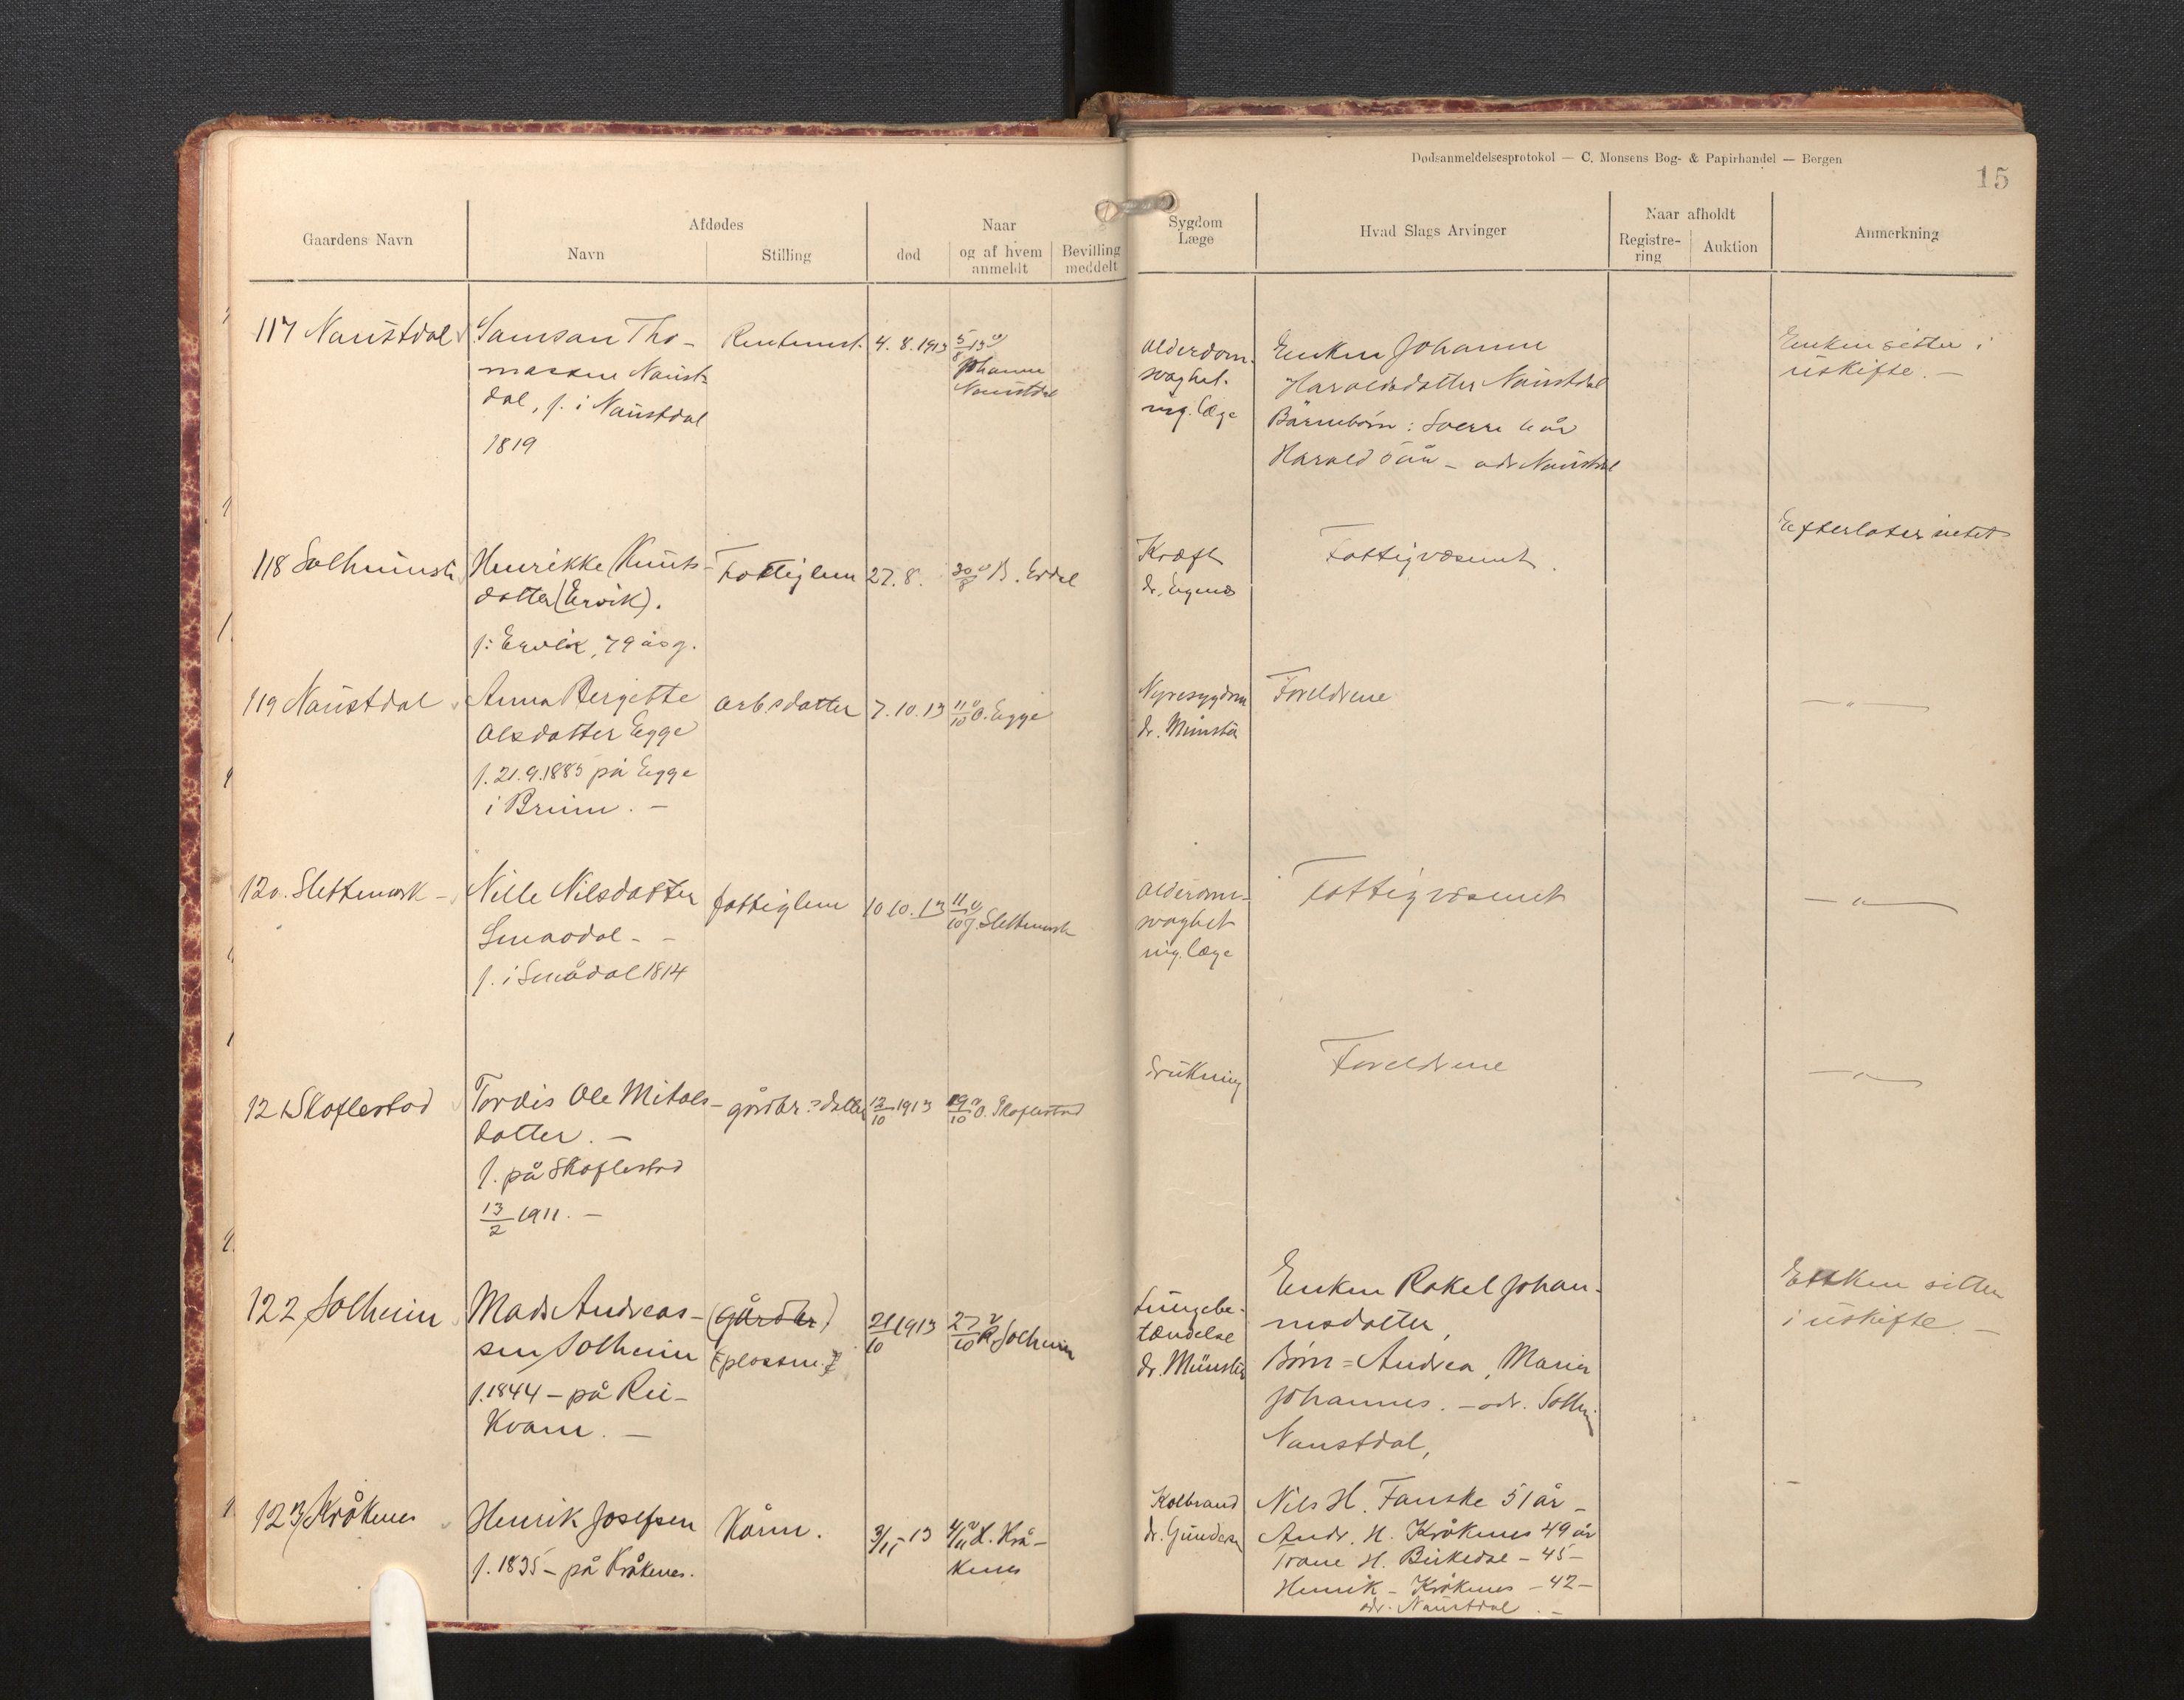 Dødsanmeldelsesprotokol — C. Monsens Bog- & Papirhandel — Bergen
15
Gaardens Navn
Afdødes
Navn
Stilling
Naar
død
og af hvem anmeldt
Bevilling meddelt
Sygdom
Læge
Hvad Slags Arvinger
Naar afholdt
Registre-
ring
Auktion
Anmerkning
117 Naustdal
Samson Tho-
massen Naust-
dal, f. i Naustdal
1819
4.8.1913
5/8 13 v
Johanne
Naustdal
Alderdom-
svaghet.
ing. læge
Enken Johanne
Haraldsdatter Naustdal
Barnebørn: Sverre
Harald - adr Naustdal
Enken sitter i
uskifte. -
118
Henrikke Knuts-
datter (Ervik).
f: Ervik, 79 år g.
Fattiglem
27.8.
30/8 v B. Erdal
Kræft
dr.
Fattigvæsenet.
Efterlater intet
119 Naustdal
Anna Bergette
Olsdatter Egge
f. 21.9.1885 på Egge
i Breim. -
arb.sdatter
7.10.13
11/10 v O. Egge
Nyresygdom
dr. Munster
Foreldrene
- " -
120. Slettemark -
Nille Nilsdatter
Smaadal - -
f. i Smådal 1814
fattiglem
10.10.13
11/10 v J. Slettemark
Alderdoms-
svaghet
ing. læge
Fattigvæsenet
- " -
121 Skaflestad
Tordis Ole Mikals-
datter. -
f. på Skaflestad
13/2 1911. -
gårdbr.s datter
12/10 1913
19/10 v O. Skaflestad
Drukning
Foreldrene
- " -
122 Solheim
Mads Andreas-
sen Solheim
f. 1844 - på
Kvam. -
(gårdbr)
(plassm.)
21/10 1913
27/10 v R. Solheim
Lungebe-
tændelse
dr. Munster
Enken Rakel Johan-
nesdatter,
Børn = Andrea, Marie
Johannes. - adr. Solheim
Naustdal,
Enken sitter
i uskifte -
123 Kråkenes
Henrik Josefsen
f. 1835 - på Kråkenes.
Kårm.
3/11 - 13
4/11 v H. Krå-
kenes
Kolbrand
dr. Gundersen
Nils H. Fanske 51 år -
Andr. H. Kråkenes 49 år
Trane H. Birkedal - 45 -
Henrik - Kråkenes - 42 -
adr. Naustdal. -
-